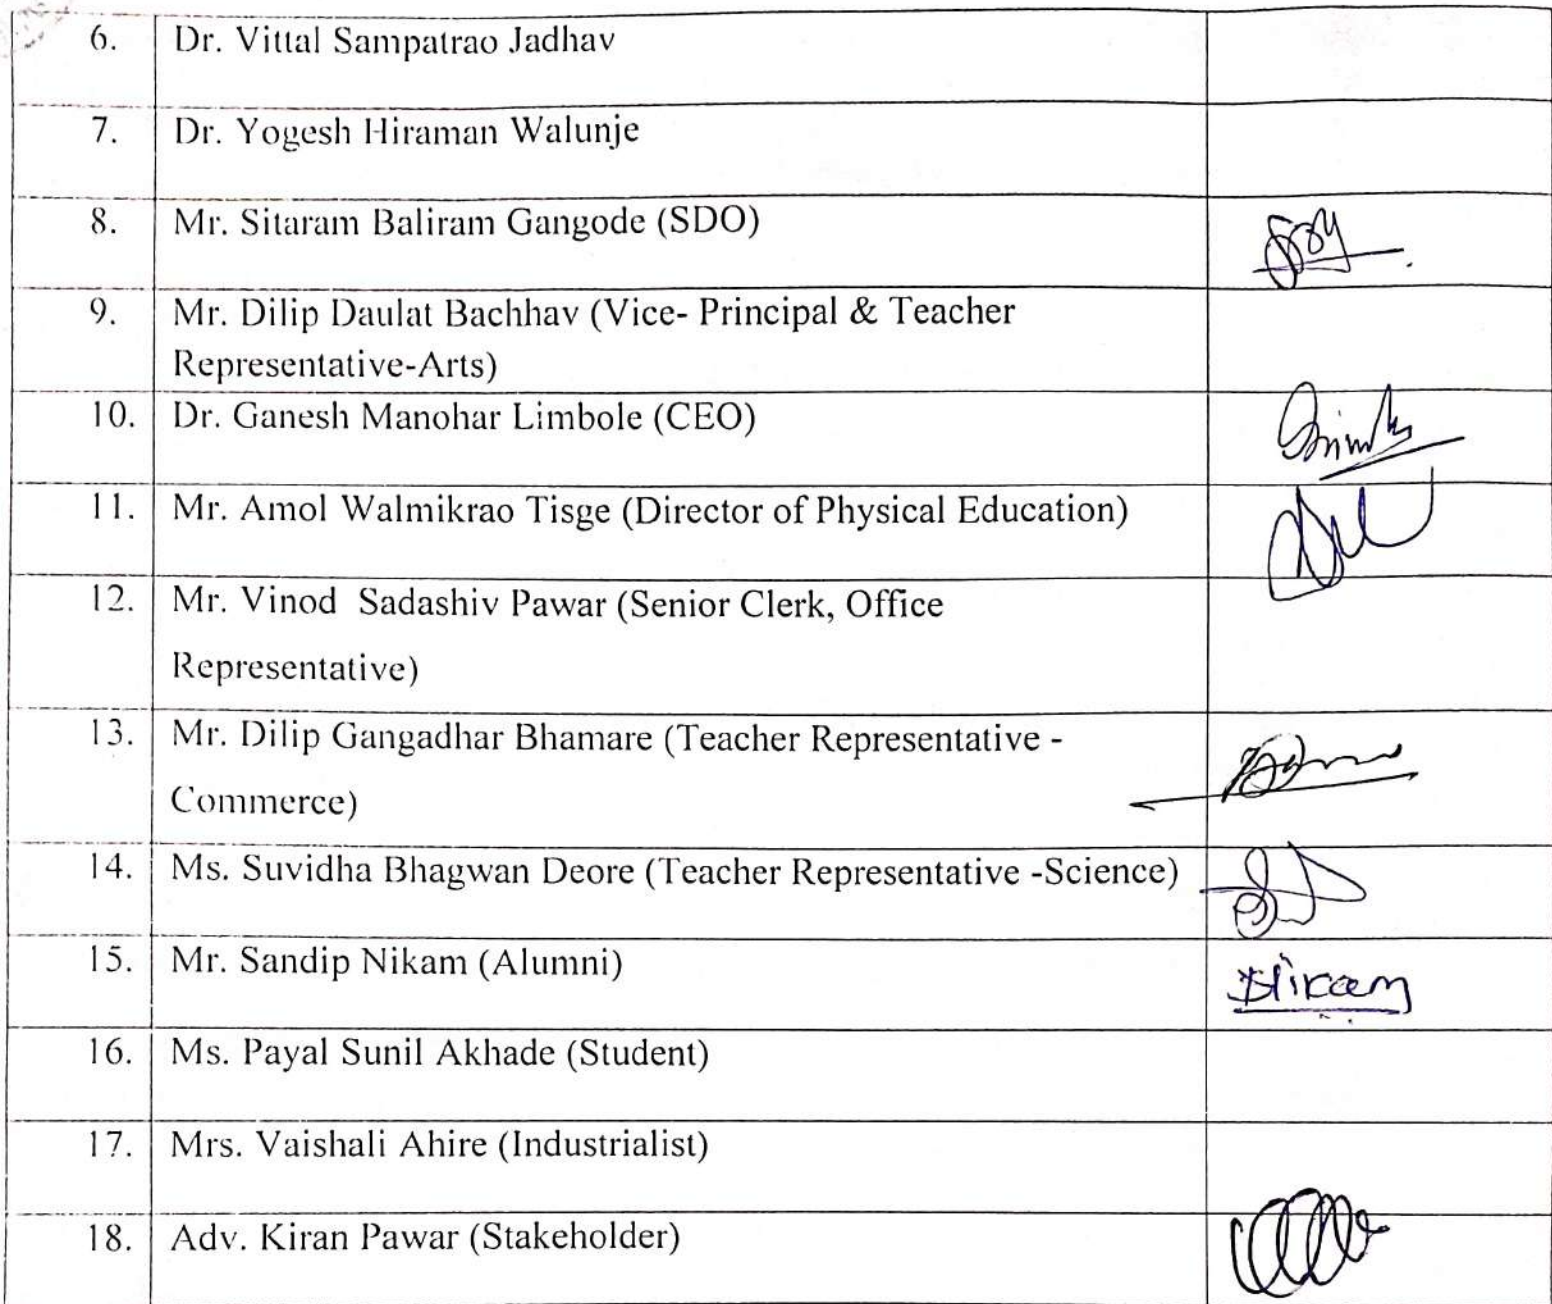 6. Dr. Vittal Sampatrao Jadhav
7. Dr. Yogesh Hiraman Walunje
8. Mr. Sitaram Baliram Gangode (SDO)
9. Mr. Dilip Daulat Bachhav (Vice- Principal & Teacher
Representative-Arts)
10. Dr. Ganesh Manohar Limbole (CEO)
11. Mr. Amol Walmikrao Tisge (Director of Physical Education)
12. Mr. Vinod Sadashiv Pawar (Senior Clerk, Office
Representative)
13. Mr. Dilip Gangadhar Bhamare (Teacher Representative -
Commerce)
14. Ms. Suvidha Bhagwan Deore (Teacher Representative -Science)
15. Mr. Sandip Nikam (Alumni)
16. Ms. Payal Sunil Akhade (Student)
17. Mrs. Vaishali Ahire (Industrialist)
18. Adv. Kiran Pawar (Stakeholder)